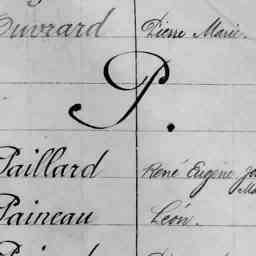 Ouvrard Pierre Marie.
P.
Paillard René Eugène
Paineau Léon.